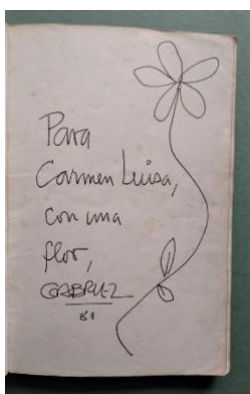 Para
Carmen Luisa,
con una
flor,
GABRIEL
81